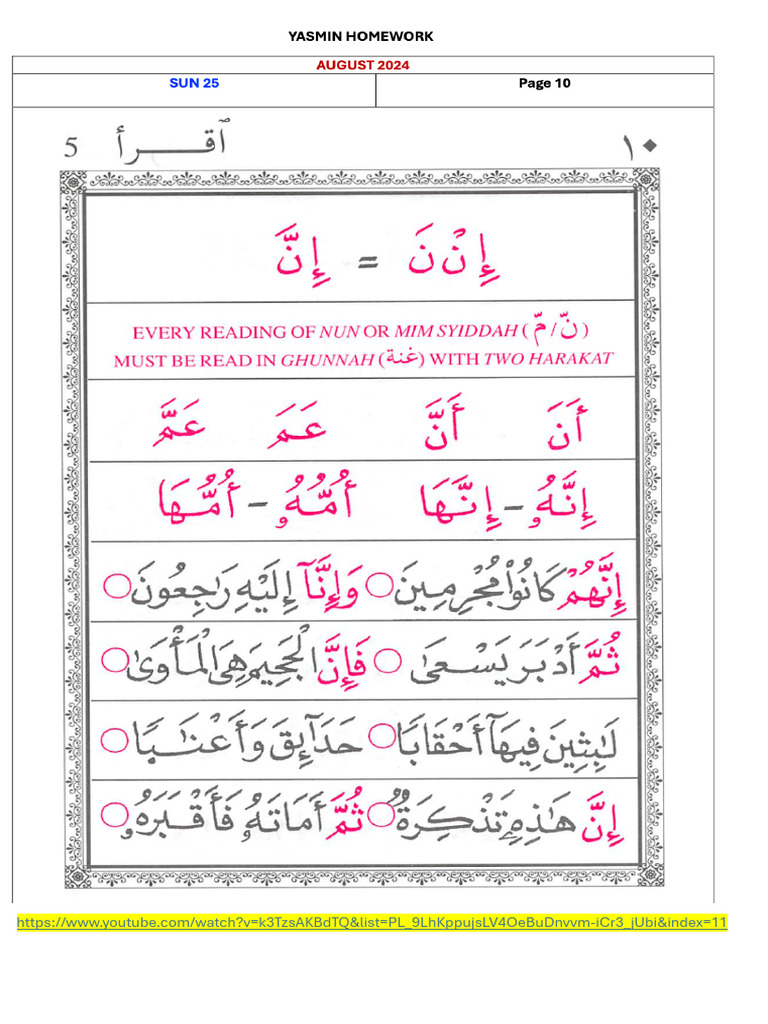 YASMIN HOMEWORK
AUGUST 2024
SUN 25 Page 10
١٠ ٱقـــرأ 5
إِنْ نَ = إِنَّ
EVERY READING OF NUN OR MIM SYIDDAH ( نّ / مّ )
MUST BE READ IN GHUNNAH (غنة) WITH TWO HARAKAT
أَنَ أَنَّ عَمَ عَمَّ
إِنَّهُۥ – إِنَّهَا أُمُّهُۥ – أُمُّهَا
إِنَّهُمْ كَانُوا۟ مُجْرِمِينَ ○ وَإِنَّآ إِلَيْهِ رَٰجِعُونَ ○
ثُمَّ أَدْبَرَ يَسْعَىٰ ○ فَإِنَّ الْجَحِيمَ هِىَ الْمَأْوَىٰ ○
لَٰبِثِينَ فِيهَآ أَحْقَابًا ○ حَدَآئِقَ وَأَعْنَٰبًا ○
إِنَّ هَٰذِهِۦ تَذْكِرَةٌ ○ ثُمَّ أَمَاتَهُۥ فَأَقْبَرَهُۥ ○
https://www.youtube.com/watch?v=k3TzsAKBdTQ&list=PL_9LhKppujsLV4OeBuDnvvm-iCr3_jUbi&index=11